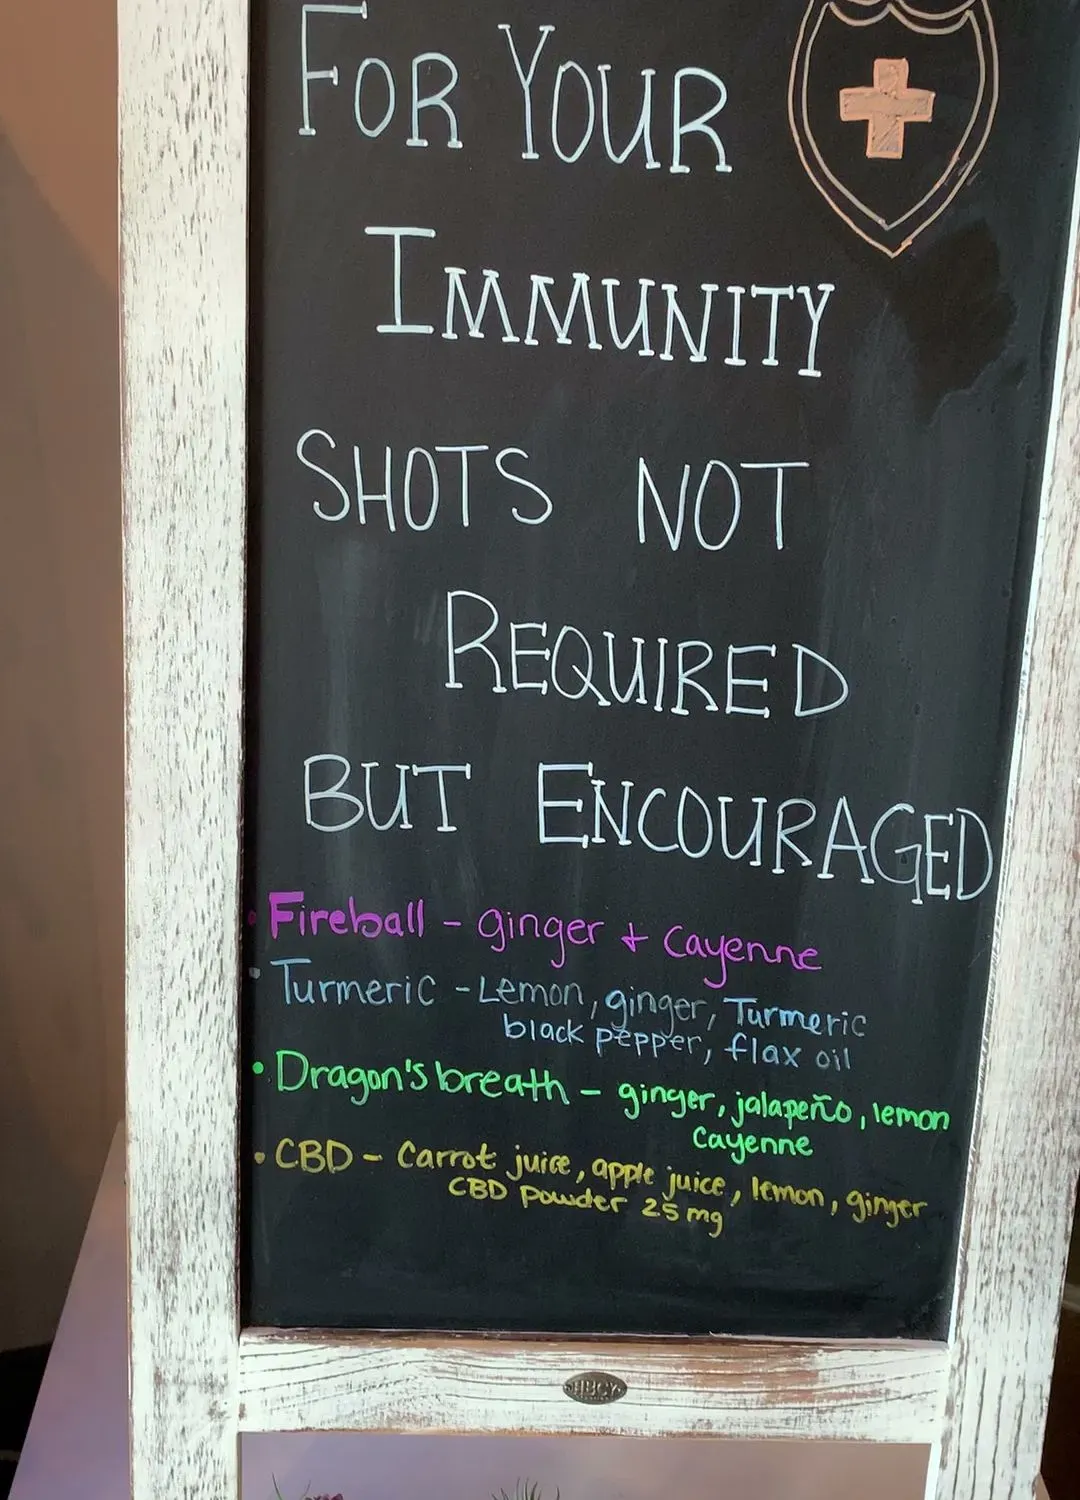 FOR YOUR
IMMUNITY
SHOTS NOT
REQUIRED
BUT ENCOURAGED
• Fireball - ginger + Cayenne
• Turmeric - Lemon, ginger, Turmeric
black pepper, flax oil
• Dragon's breath - ginger, jalapeño, lemon
Cayenne
• CBD - Carrot juice, apple juice, lemon, ginger
CBD Powder 25 mg
HBCY